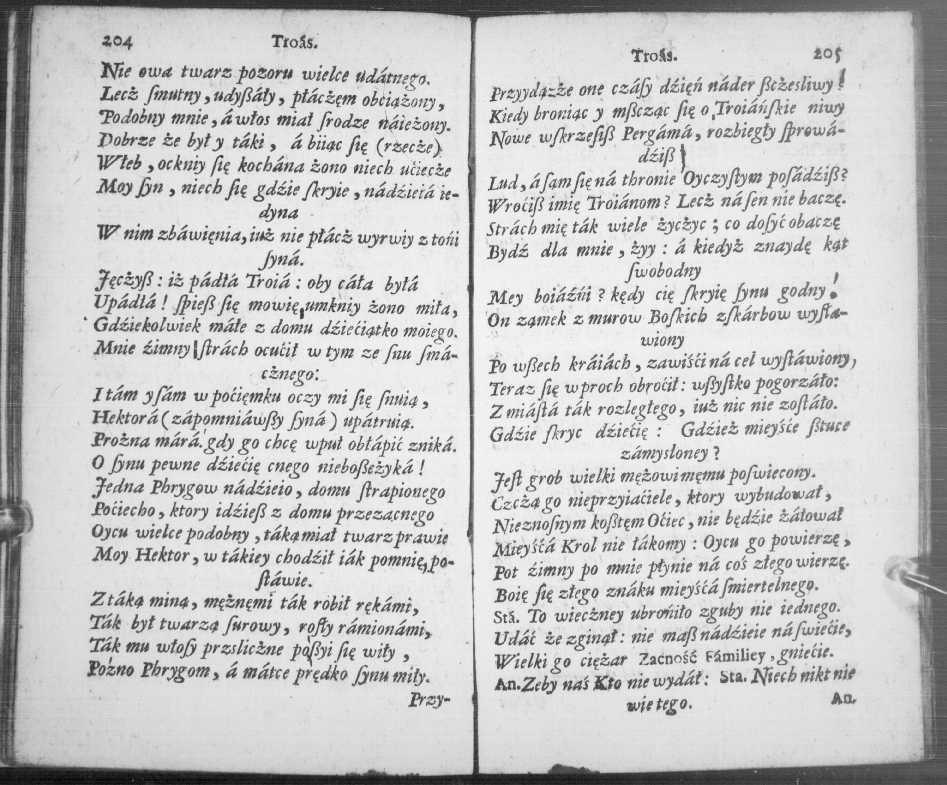 204 Troás.
Nie owa twarz pozoru wielce udátnego.
Lecż ſmutny, udyßáły, płácżęm obciążony,
Podobny mnie, á włos miał ſrodze náieżony.
Dobrze że był y táki, á biiąc ſię (rzecże)
W łeb, ockniy ſię kochána żono niech uciecże
Moy ſyn, niech ſię gdźie ſkryie, nádźieiá ie-
dyna
W nim zbáwięnia, iuż nie płácż wyrwiy z tońi
ſyná.
Jęcżyß: iż pádłá Troiá: oby cáła byłá
Upádłá! ſpieß ſię mowię, umkniy żono miła,
Gdźiekolwiek máłe z domu dźiećiątko moiego.
Mnie źimny ſtrách ocućił w tym ze ſnu ſmá-
cżnego:
I tám y ſám w poćięmku oczy mi ſię ſnuią,
Hektorá (zápomniáwßy ſyná) upátruią.
Prożna márá, gdy go chcę wpuł obłápić zniká.
O ſynu pewne dźiećię cnego nieboßcżyká!
Jedna Phrygow nádźieio, domu ſtrapionego
Poćiecho, ktory idźieß z domu przezacnego
Oycu wielce podobny, táką miał twarz prawie
Moy Hektor, w tákiey chodźił iák pomnię, po-
ſtáwie.
Z táką miną, mężnęmi ták robił rękámi,
Ták był twarzą ſurowy, roſły rámionámi,
Ták mu włoſy przsliczne po ßyi ſię wiły,
Poźno Phrygom, á mátce prędko ſynu miły.
Przy-
Troás. 205
Przyydąż że one czáſy dźięń náder ßcżesliwy!
Kiedy broniąc y mßcząc ſię o Troiáńſkie niwy
Nowe wſkrzeſiß Pergámá, rozbiegły ſprowá-
dźiß
Lud, á ſam ſię ná thronie Oyczyſtym poſádźiß?
Wroćiß imię Troiánom? Lecż ná ſen nie baczę.
Strách mię ták wiele życżyc; co doſyć obaczę
Bydź dla mnie, żyy: á kiedyż znaydę kąt
ſwobodny
Mey boiáźńi? kędy cię ſkryię ſynu godny!
On zamek z murow Boſkich z ſkárbow wyſta-
wiony
Po wßech kráiách, zawiśći ná cel wyſtáwiony,
Teraz ſię w proch obroćił: wßyſtko pogorzáło:
Z miáſtá ták rozległego, iuż nic nie zoſtáło.
Gdźie ſkryc dźiećię: Gdźież mieyśce ßtuce
zámysloney?
Jeſt grob wielki mężowi memu poſwiecony.
Czcżą go nieprzyiaćiele, ktory wybudował,
Nieznoſnym koßtęm Oćiec, nie będźie żáłował
Mieyśćá Krol nie łákomy: Oycu go powierzę,
Pot źimny po mnie płynie ná coś złego wierzę.
Boię ſię złego znáku mieyśćá ſmiertelnego.
Stá. To wiecżney ubroniło zguby nie iednego.
Udáć że zginął: nie maß nádźieie ná ſwiećie,
Wielki go ciężar Zacność Fámiliey, gniećie.
An. Zeby nás Kto nie wydáł: Sta. Niech nikt nie
wie tego. An.